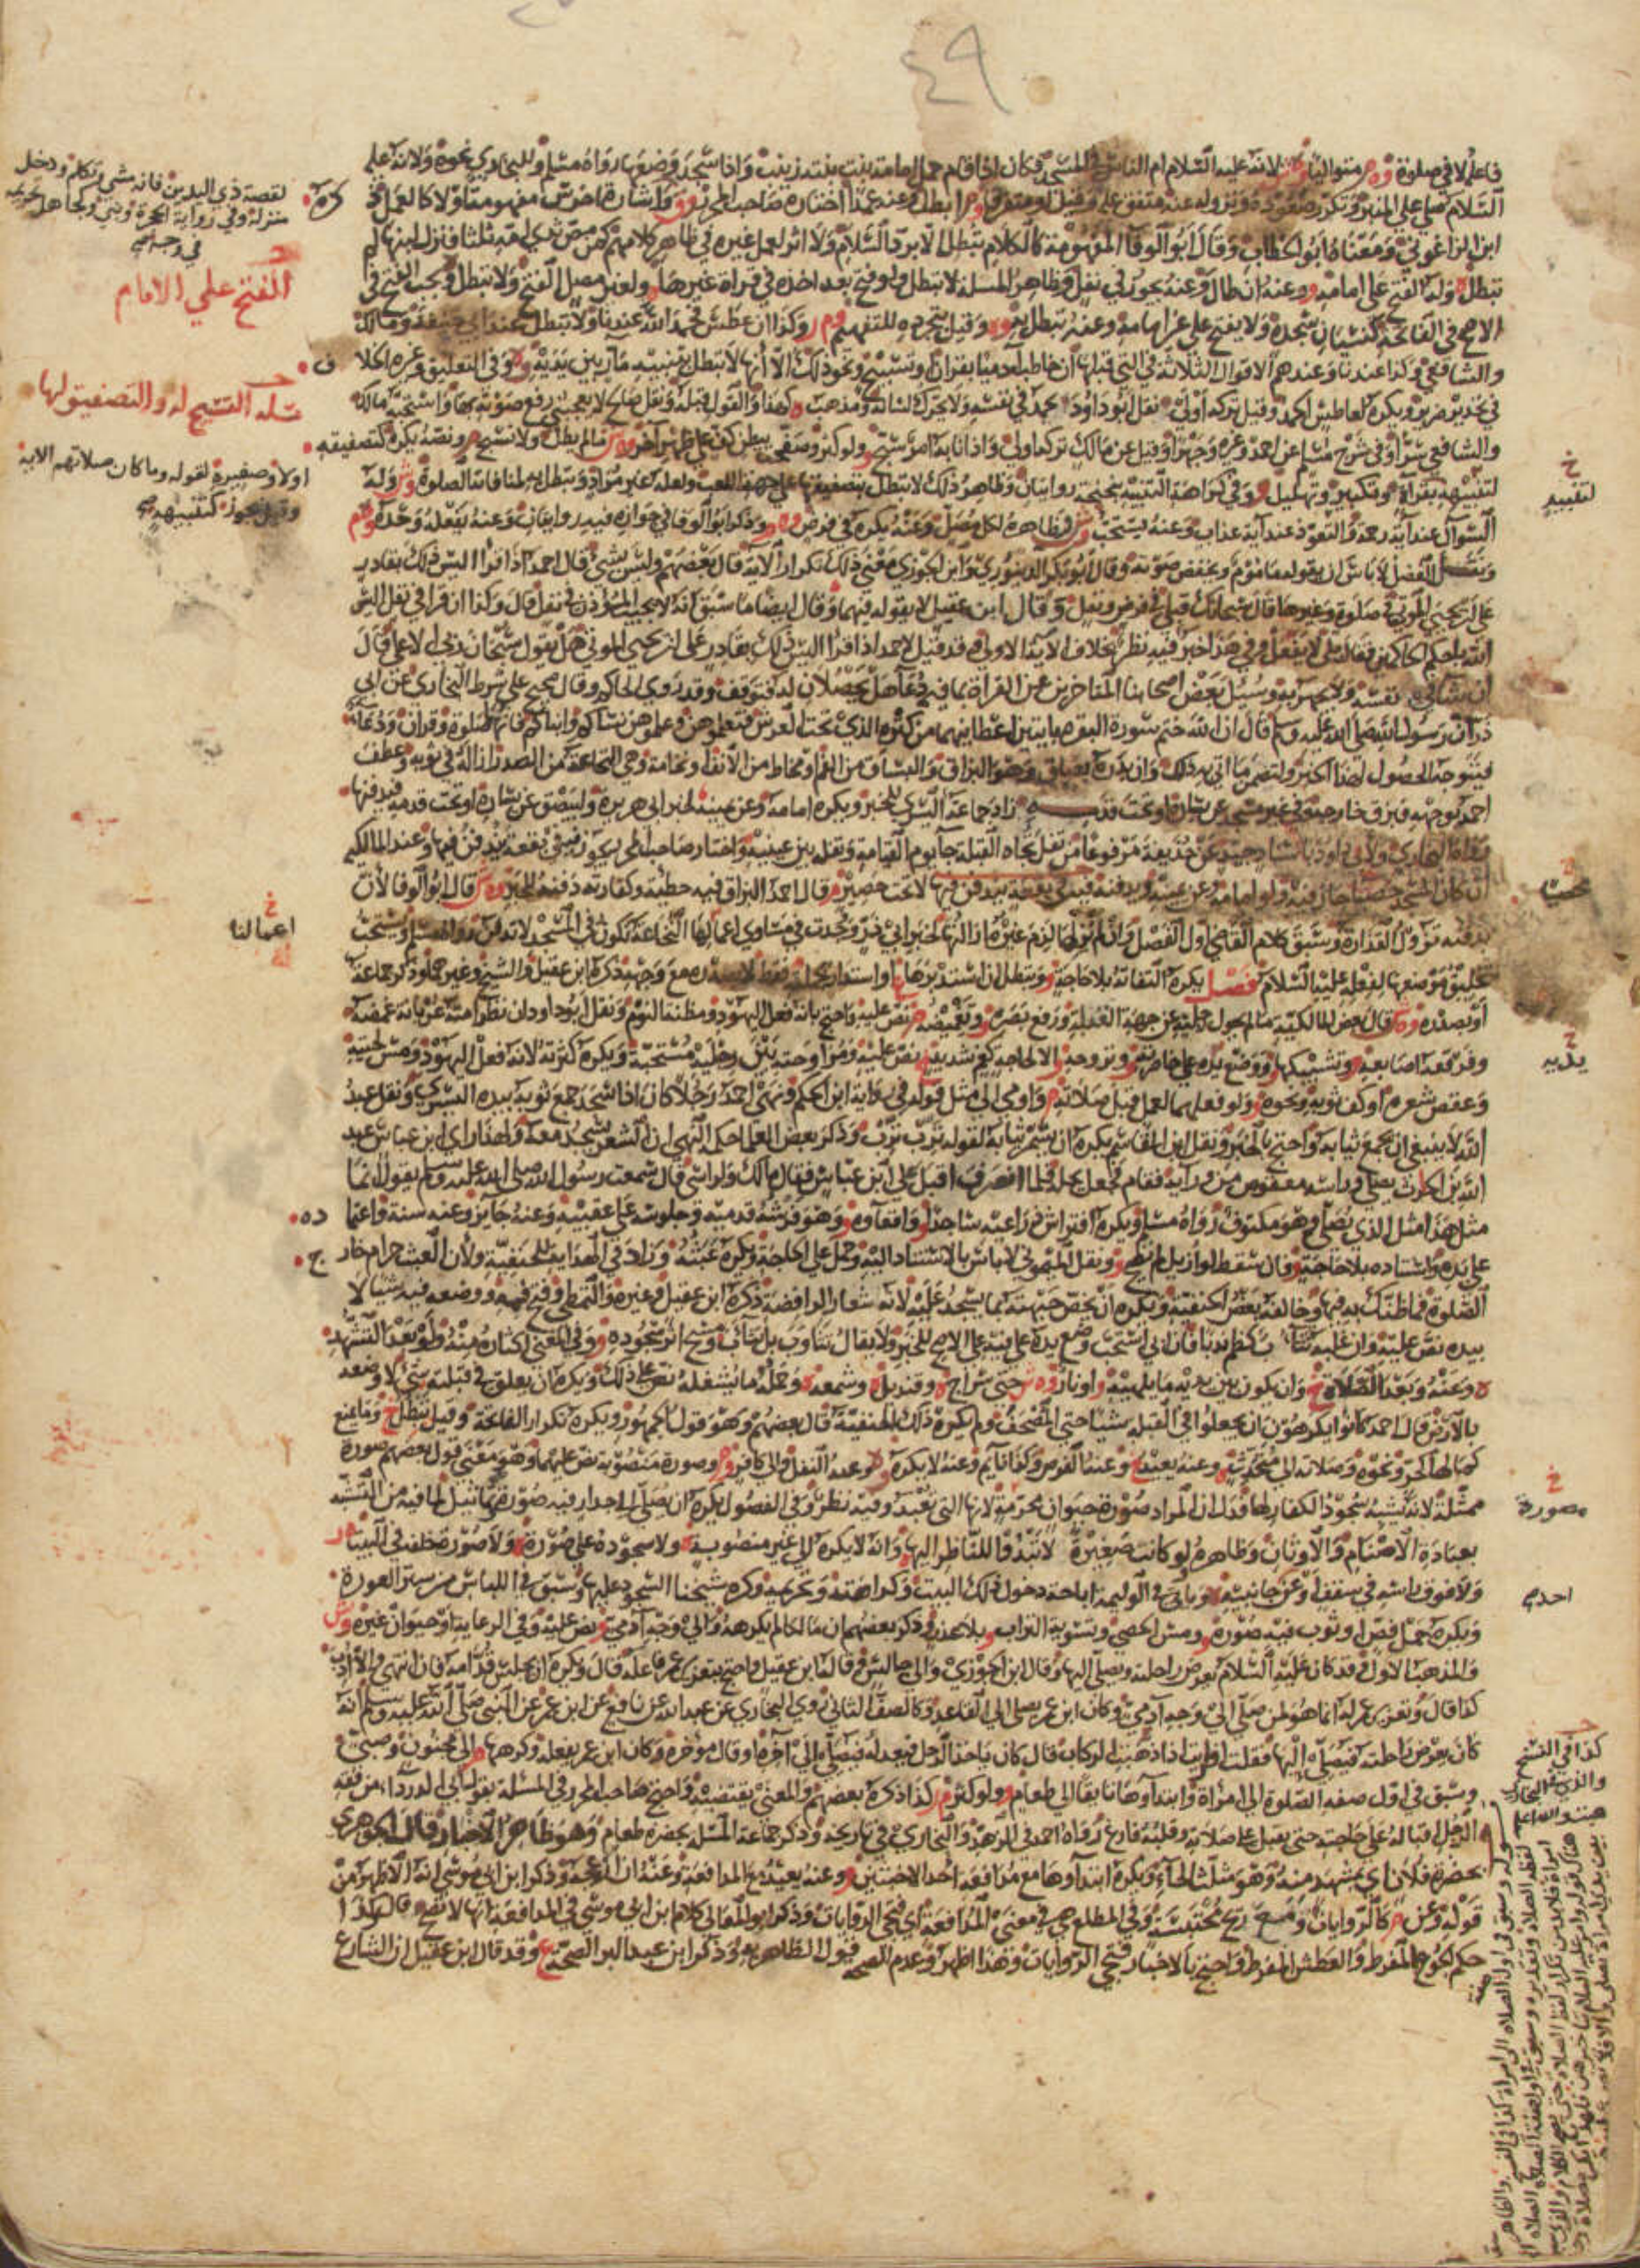 ٤٩
السلام صلى على المنبر وتكرر صعوده ونزوله عنه متفق عليه وقيل او متفرقا
ابن الزاغوني ومعناه ابو الخطاب وقال ابو الوفا المفهومة كالكلام تبطل الا برد السلام ولا اثر لعمل غيره في ظاهر كلامهم كمن مص ثدي امه ثلثا فنزل لبنها لم
تبطل وله الفتح على امامه وعنه ان طال وعنه يجوز في نفل وظاهر المسئلة لا تبطل ولو فتح بعد اخذه في قراة غيرها ولغير مصل الفتح ولا تبطل ويجب الفتح في
الاصح في الفاتحة كنسيان سجدة ولا يفتح على غير امامه وعنه تبطل به وقيل بتجرده للتفهيم وكذا ان عطس فحمد الله عندنا ولا تبطل عند ابي حنيفة ومالك
والشافعي وكذا عندنا وعندهم الاقوال الثلاثة في التي قبلها ان خاطب آدميا بقران وتسبيح ونحو ذلك الا انها لا تبطل بتنبيه مار بين يديه وفي التعليق وغيره الخلاف
في تحذير ضرير ويكره لعاطس الحمد وقيل تركه اولى نقل ابو داود يحمد في نفسه ولا يحرك لسانه ومذهب
والشافعي سرا وفي شرح مسلم عن احمد وغيره وجهرا وقيل عن مالك تركه اولى واذا نابه امر سبح ولو كثر وصفحت ببطن كف على ظهر اخرى
لتنبيهه بقراة وتكبير وتهليل وفي كراهة التنبيه بنحنحة روايتان وظاهر ذلك لا تبطل بتصفيقها على جهة اللعب ولعله غير مراد وتبطل به لمنافاته الصلوة وله
السوال عند آية رحمة والتعوذ عند آية عذاب وعنه يستحب وظاهره لكل مصل وعنه يكره في فرض وذكر ابو الوفا في جوازه فيه روايتان وعنه يفعله وحده
ونقل الفضل لا باس ان يقوله ماموم ويخفض صوته وقال ابو بكر الدينوري وابن الجوزي معنى ذلك تكرار الآية قال بعضهم وليس بشي قال احمد اذا قرا اليس ذلك بقادر
على ان يحيي الموتى في صلوة وغيرها قال سبحانك فبلى في فرض ونفل وقال ابن عقيل لا يقوله فيهما وقال ايضا ما سبق انه لا يجيب المؤذن في نفل قال وكذا ان قرا في نفل اليس
الله باحكم الحاكمين فقال بلى لا يفعل وفي هذا خبر فيه نظر بخلاف الآية الاولى وقد قيل لاحمد اذا قرا اليس ذلك بقادر على ان يحيي الموتى هل يقول سبحان ربي الاعلى قال
ان شا في نفسه ولا يجهر به وسئل بعض اصحابنا المتاخرين عن القراة بما فيه دعآ هل يحصلان له فتوقف وقد روى الحاكم وقال صحيح على شرط البخاري عن ابي
ذر ان رسول الله صلى الله عليه وسلم قال ان الله ختم سورة البقرة بايتين اعطانيهما من كنزه الذي تحت العرش فتعلموهن وعلموهن نسآكم وابناكم فانها صلوة وقران ودعآ
فيتوجه الحصول لهذا الخبر ولتضمن ما اتى به ذلك وان بدره بصاق وهو البزاق والبساق من الفم او مخاط من الانف او نخامة وهي النخاعة من الصدر ازاله في ثوبه وعطف
احمد بوجهه فبزق خارجه وفي غير مسجد عن يساره او تحت قدمه زاد جماعة اليسرى للخبر ويكره امامه وعن يمينه لخبر ابي هريرة وليبصق عن يساره او تحت قدمه فيدفنها
رواه البخاري ولابي داود باسناد جيد عن حذيفة مرفوعا من تفل تجاه القبلة جآ يوم القيامة وتفله بين عينيه
يدفنه تزول القذارة وسبق كلام القاضي اول الفصل وان لم يزلها لزم غيره ازالتها لخبر ابي ذر وجدت في مساوي اعمالها النخاعة تكون في المسجد لا تدفن
تخليق موضعها لفعله عليه السلام فصل يكره التفاته بلا حاجة وتبطل ان استدبرها
او بصدره وقال بعض المالكية ما لم يحول رجليه عن جهة القبلة ورفع بصره وتغميضه نص عليه واحتج بانه فعل اليهود ومظنة النوم ونقل ابو داود ان نظر امته عريانة غمضه
وفرقعة اصابعه وتشبيكها ووضع يده على خاصرته وتروحه الا لحاجة كغم شديد نص عليه ومراوحته بين رجليه مستحبة ويكره كثرته لانه فعل اليهود ومس لحيته
وعقص شعره او كف ثوبه ونحوه ولو فعلهما لعمل قبل صلاته واومى الى مثل قوله في رواية ابن الحكم ونهى احمد رجلا كان اذا سجد جمع ثوبه بيده اليسرى ونقل عبد
الله لا ينبغي ان يجمع ثيابه واحتج بالخبر ونقل ابن القاسم يكره ان يشمر ثيابه لقوله ترب ترب وذكر بعض العلما حكمة النهي ان الشعر يسجد معه ولهذا راى ابن عباس عبد
الله بن الحارث يصلي وراسه معقوص من ورآيه فقام فجعل يحله فلما انصرف اقبل على ابن عباس فقال مالك ولراسي قال سمعت رسول الله صلى الله عليه وسلم يقول انما
مثل هذا مثل الذي يصلي وهو مكتوف رواه مسلم ويكره افتراش ذراعيه ساجدا واقعآوه وهو فرشه قدميه وجلوسه على عقبيه وعنه جايز وعنه سنة واعتما
على يده واستناده بلا حاجة فان سقط لو ازيل لم تصح ونقل الميموني لا باس بالاستناد اليه وحمل على الحاجة ويكره عبثه وزاد في الهداية للحنفية ولان العبث حرام خارج
الصلوة فما ظنك به فيها وخالفه بعض الحنفية ويكره ان يخص جبهته بما يسجد عليه لانه شعار الرافضة ذكره ابن عقيل وغيره والتمطي وفتح فمه ووضعه فيه شيئا لا
بيده نص عليه وان غلبه تثآب كظم ندبا فان ابى استحب وضع يده على فيه على الاصح للخبر ولا يقال تثاوب بل تثآب ومسح اثر سجوده وفي المغني اكثاره منه ولو بعد التشهد
وعنه وبعد الصلاة وان يكون بين يديه ما يلهيه او نار حتى سراج وقنديل وشمعة وحمله ما يشغله نص على ذلك ويكره ان يعلق في قبلته شي لا وضعه
بالارض قال احمد كانوا يكرهون ان يجعلوا في القبلة شيئا حتى المصحف ولم يكره ذلك الحنفية قال بعضهم وهو قول الجمهور ويكره تكرار الفاتحة وقيل تبطل وما يمنع
كمالها كحر ونحوه وصلاته الى متحدث وعنه يعيد وعنه الفرض وكذا نايم وعنه لا يكره وعنه النفل والى كافر وصورة منصوبة نص عليهما وهو معنى قول بعضهم صورة
ممثلة لانه يشبه سجود الكفار لها فدل ان المراد صورة حيوان محرمة لانها التي تعبد وفيه نظر وفي الفصول يكره ان يصلي الى جدار فيه صورة وتماثيل لما فيه من التشبه
بعبادة الاصنام والاوثان وظاهره لو كانت صغيرة لا تبدوا للناظر اليها وانه لا يكره الى غير منصوبة ولا سجوده على صورة ولا صورة خلفه في البيت
ولا فوق راسه في سقف او عن جانبيه وياتي في الوليمة اباحة دخول ذلك البيت وكراهته وتحريمه وكره شيخنا السجود عليها وسبق في اللباس من ستر العورة
ويكره حمل فص او ثوب فيه صورة ومس الحصى وتسوية التراب بلا عذر وذكر بعضهم ان مالكا لم يكرهه والى وجه آدمي نص عليه وفي الرعاية او حيوان غيره
والمذهب الاول فقد كان عليه السلام يعرض راحلته ويصلي اليها وقال ابن الجوزي والى جالس وقاله ابن عقيل واحتج بتعزير عمر فاعله قال ويكره ان يجلس قدامه
كذا قال وتعزير عمر له انما هو لمن صلى الى وجه آدمي وكان ابن عمر يصلي الى القاعد وكالصف الثاني روى البخاري عن عبدالله عن نافع عن ابن عمر عن النبي صلى الله عليه وسلم انه
كان يعرض راحلته فيصلي اليها فقلت افرايت اذا ذهبت الركاب قال كان ياخذ الرحل فيعدله فيصلي الى آخره او قال مؤخره وكان ابن عمر يفعله وكرهها الى مجنون وصبي
وسبق في اول صفة الصلوة الى امراة وابتدآوها تايقا الى طعام ولو كثر كذا ذكره بعضهم والمعنى يقتضيه واحتج صاحب المحرر في المسئلة بقول ابي الدردآء من فقه
الرجل اقباله على حاجته حتى يقبل على صلاته وقلبه فارغ رواه احمد في الزهد والبخاري في تاريخه وذكر جماعة المسئلة بحضرة طعام وهو ظاهر الاخبار قال الجوهري
بحضرة فلان اي بمشهد منه وهو مثلث الحآء ويكره ابتدآوها مع مدافعة احد الاخبثين وعنه يعيد مع المدافعة وعنه ان ازعجه وذكر ابن ابي موسى انه الاظهر من
قوله وعن كالروايات ومع ريح محتبسة وفي المطلع هي في معنى المدافعة اي فتجي الروايات وذكر ابو المعالي كلام ابن ابي موسى في المدافعة انها لا تصح قال وكذا
حكم الجوع المفرط والعطش المفرط واحتج بالاخبار فتجي الروايات وهذا اظهر وعدم الصحة قول الظاهرية وذكر ابن عبد البر الصحة ع وقد قال ابن عقيل ان الشارع
لقصة ذي اليدين فانه مشى وتكلم ودخل
منزله وفي رواية الحجرة وبنى
الفتح على الامام
مسئلة التسبيح له والتصفيق لها
اعمالنا
يديه
مصورة
احدهم
كذا في النسخ
والذي في البخاري